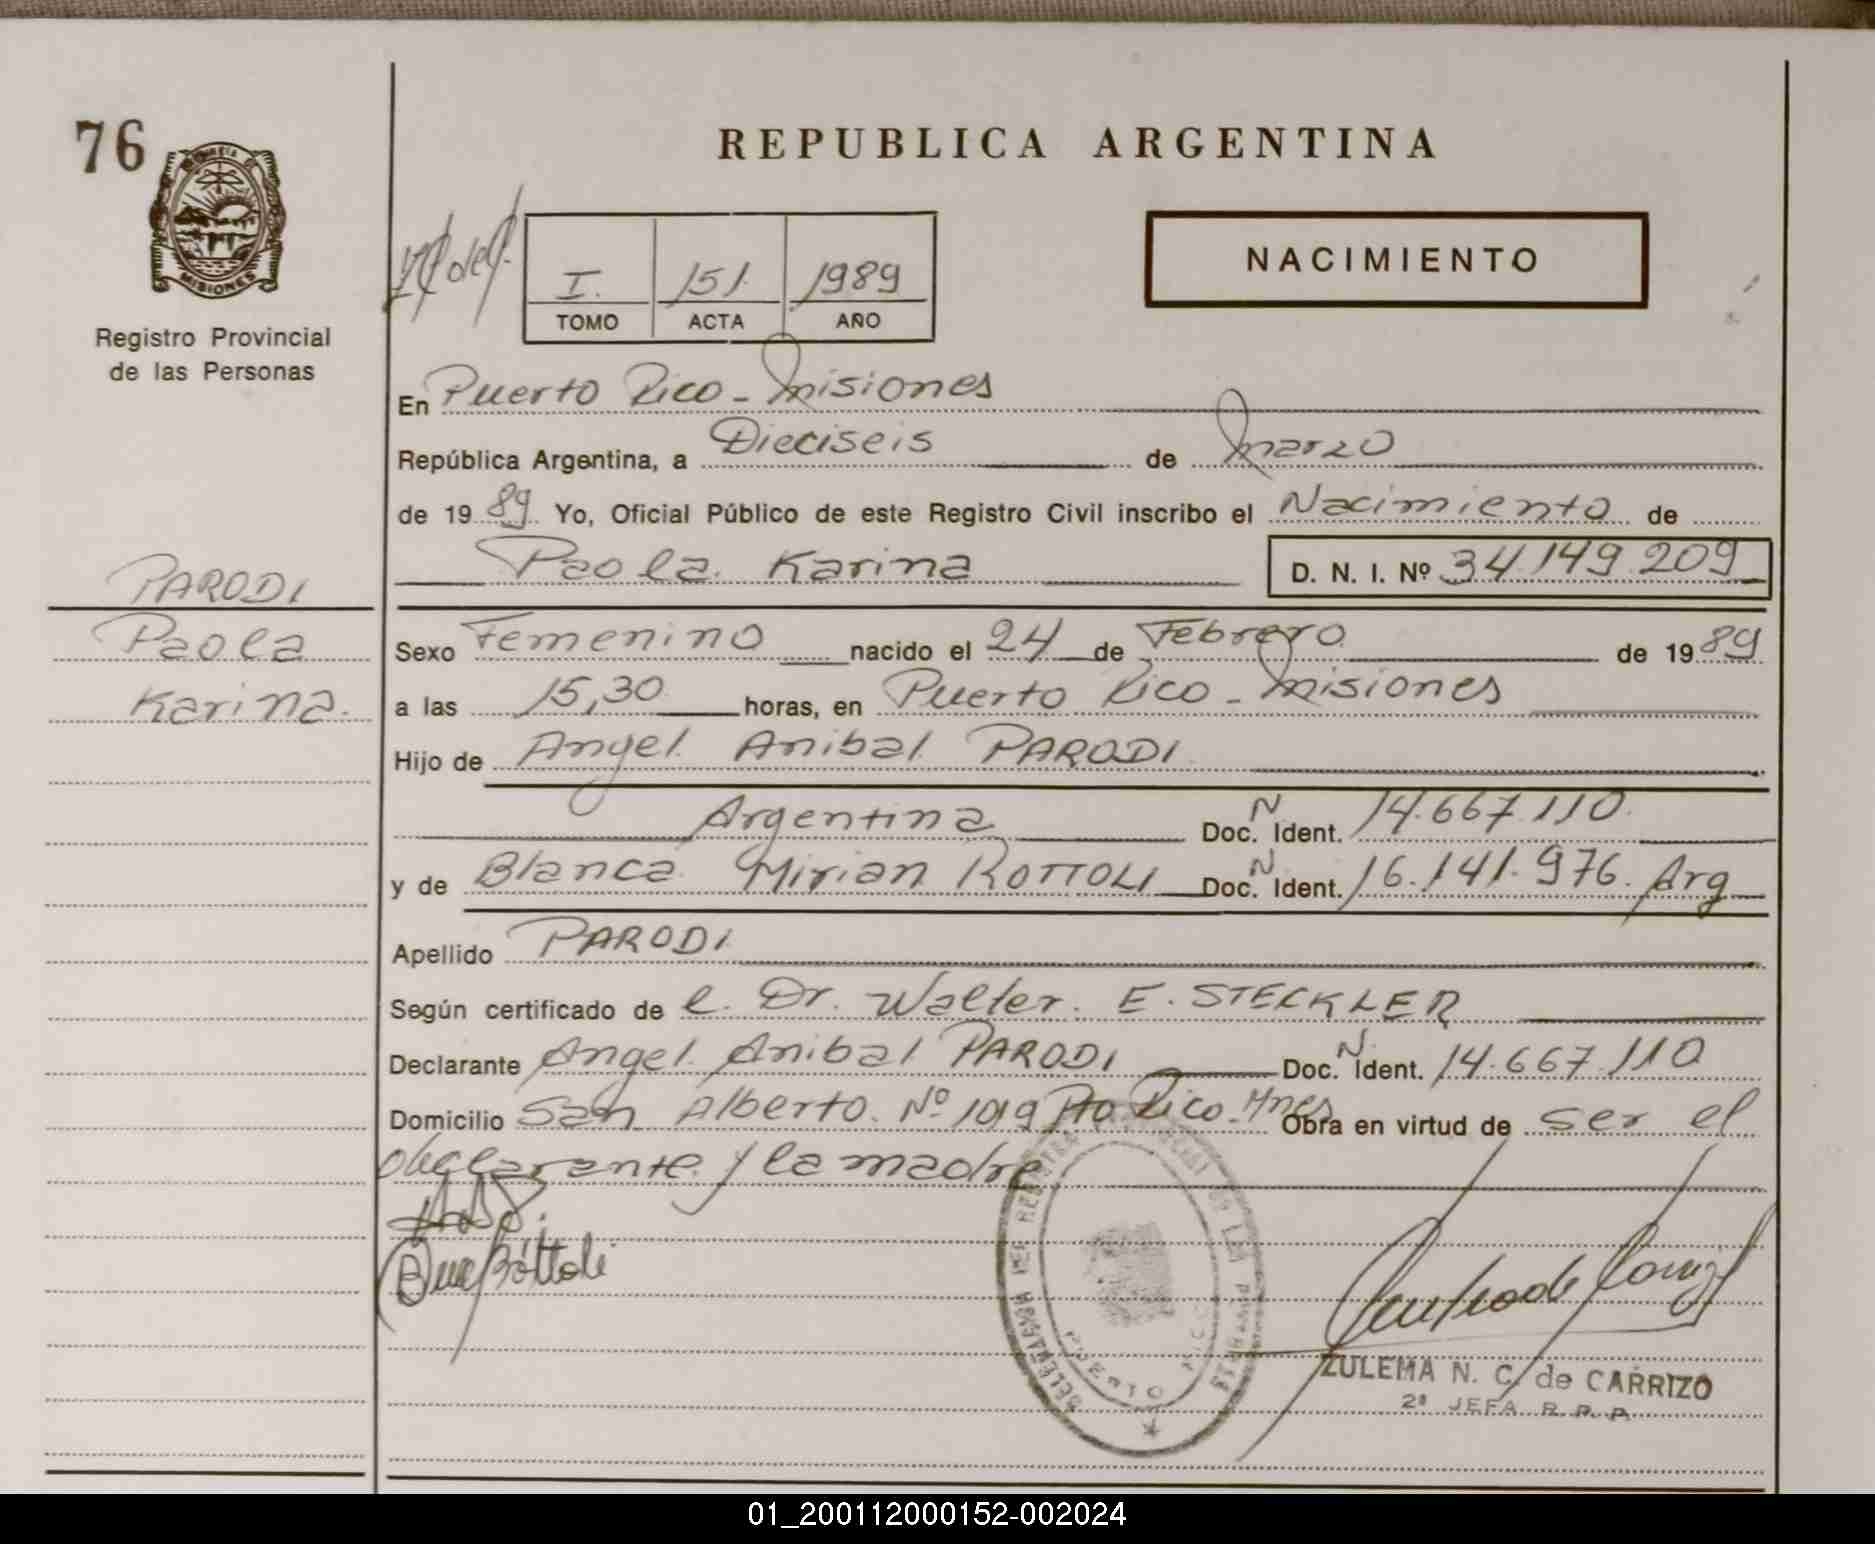 76
REPUBLICA ARGENTINA
MISIONES
Registro Provincial
de las Personas
I. 151. 1989
TOMO ACTA AÑO
NACIMIENTO
En Puerto Rico - Misiones
República Argentina, a Dieciseis de Marzo
de 19 89 Yo, Oficial Público de este Registro Civil inscribo el Nacimiento de
Paola Karina D. N. I. Nº 34.149.209
PARODI
Paola
Karina.
Sexo Femenino nacido el 24 de Febrero de 19 89
a las 15,30 horas, en Puerto Rico - Misiones
Hijo de Angel Anibal PARODI
Argentina Doc. N Ident. 14.667.110.
y de Blanca Mirian ROTTOLI Doc. N Ident. 16.141.976. Arg
Apellido PARODI
Según certificado de l. Dr. Walter. E. STECKLER
Declarante Angel Anibal PARODI Doc. N. Ident. 14.667.110
Domicilio San Alberto. Nº 1019 Pto Rico - Mnes Obra en virtud de ser el
declarante y la madre
Rottoli
DELEGACION DEL REGISTRO PROVINCIAL DE LAS PERSONAS
PUERTO RICO
ZULEMA N. C. de CARRIZO
2ª JEFA R. P. P.
01_200112000152-002024